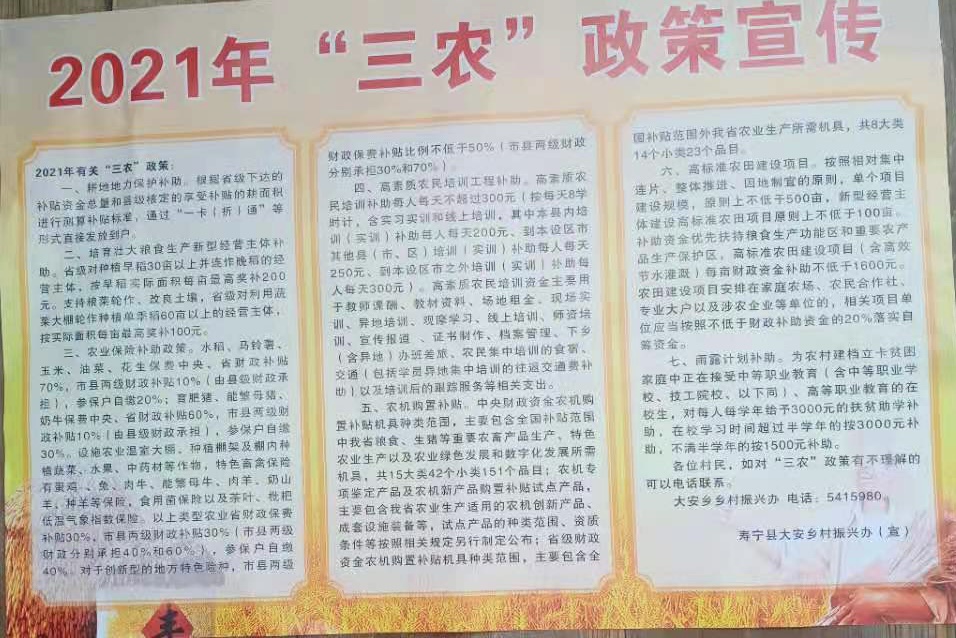 2021年“三农”政策宣传
2021年有关“三农”政策：
一、耕地地力保护补助。根据省级下达的
补贴资金总量和县级核定的享受补贴的耕面积
进行测算补贴标准，通过“一卡（折）通”等
形式直接发放到户。
二、培育壮大粮食生产新型经营主体补
助。省级对种植早稻30亩以上并连作晚稻的经
营主体，按早稻实际面积每亩最高奖补200
元。支持粮菜轮作、改良土壤，省级对利用蔬
菜大棚轮作种植单季稻60亩以上的经营主体，
按实际面积每亩最高奖补100元。
三、农业保险补助政策。水稻、马铃薯、
玉米、油菜、花生保费中央、省财政补贴
70%，市县两级财政补贴10%（由县级财政承
担），参保户自缴20%；育肥猪、能繁母猪、
奶牛保费中央、省财政补贴60%，市县两级财
政补贴10%（由县级财政承担），参保户自缴
30%。设施农业温室大棚、种植棚架及棚内种
植蔬菜、水果、中药材等作物，特色畜禽保险
有蛋鸡、兔、肉牛、能繁母牛、肉羊、奶山
羊、种羊等保险，食用菌保险以及茶叶、枇杷
低温气象指数保险。以上类型农业省财政保费
补贴30%，市县两级财政补贴30%（市县两级
财政分别承担40%和60%），参保户自缴
40%。对于创新型的地方特色险种，市县两级
财政保费补贴比例不低于50%（市县两级财政
分别承担30%和70%）。
四、高素质农民培训工程补助。高素质农
民培训补助每人每天不超过300元（按每天8学
时计，含实习实训和线上培训，其中本县内培
训（实训）补助每人每天200元、到本设区市
其他县（市、区）培训（实训）补助每人每天
250元、到本设区市之外培训（实训）补助每
人每天300元）。高素质农民培训资金主要用
于教师课酬、教材资料、场地租金、现场实
训、异地培训、观摩学习、线上培训、师资培
训、宣传报道、证书制作、档案管理、下乡
（含异地）办班差旅、农民集中培训的食宿、
交通（包括学员异地集中培训的往返交通费补
助）以及培训后的跟踪服务等相关支出。
五、农机购置补贴。中央财政资金农机购
置补贴机具种类范围，主要包含全国补贴范围
中我省粮食、生猪等重要农畜产品生产、特色
农业生产以及农业绿色发展和数字化发展所需
机具，共15大类42个小类151个品目；农机专
项鉴定产品及农机新产品购置补贴试点产品，
主要包含我省农业生产适用的农机创新产品、
成套设施装备等，试点产品的种类范围、资质
条件等按照相关规定另行制定公布；省级财政
资金农机购置补贴机具种类范围，主要包含全
国补贴范围外我省农业生产所需机具，共8大类
14个小类23个品目。
六、高标准农田建设项目。按照相对集中
连片、整体推进、因地制宜的原则，单个项目
建设规模，原则上不低于500亩，新型经营主
体建设高标准农田项目原则上不低于100亩。
补助资金优先扶持粮食生产功能区和重要农产
品生产保护区，高标准农田建设项目（含高效
节水灌溉）每亩财政资金补助不低于1600元。
农田建设项目安排在家庭农场、农民合作社、
专业大户以及涉农企业等单位的，相关项目单
位应当按照不低于财政补助资金的20%落实自
筹资金。
七、雨露计划补助。为农村建档立卡贫困
家庭中正在接受中等职业教育（含中等职业学
校、技工院校，以下同）、高等职业教育的在
校生，对每人每学年给予3000元的扶贫助学补
助，在校学习时间超过半学年的按3000元补
助，不满半学年的按1500元补助。
各位村民，如对“三农”政策有不理解的
可以电话联系。
大安乡乡村振兴办 电话：5415980。
寿宁县大安乡村振兴办（宣）